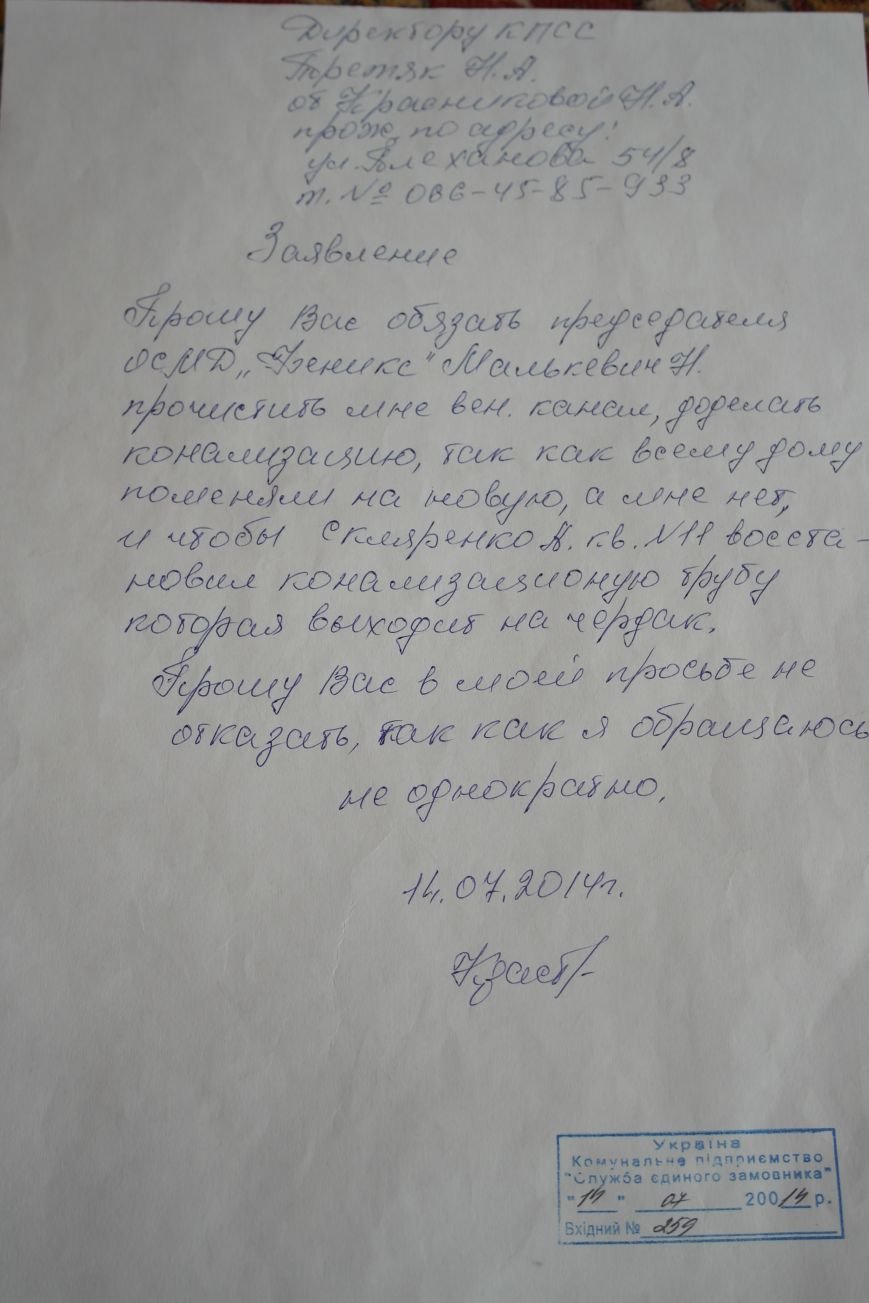 Директору КПСС
Третяк Н.А.
от Красниковой Н.А.
прож. по адресу:
ул. Плеханова 54/8
т. № 066-45-85-933
Заявление
Прошу Вас обязать председателя
ОСМД „Феникс" Малькевич Н.
прочистить мне вен. канал, доделать
конализацию, так как всему дому
поменяли на новую, а мне нет,
и чтобы Скляренко А. кв. N11 восста-
новил конализационую трубу
которая выходит на чердак.
Прошу Вас в моей просьбе не
отказать, так как я обращаюсь
не однократно.
14.07.2014г.
Україна
Комунальне підприємство
"Служба єдиного замовника"
"14" 07 20014 р.
Вхідний № 259